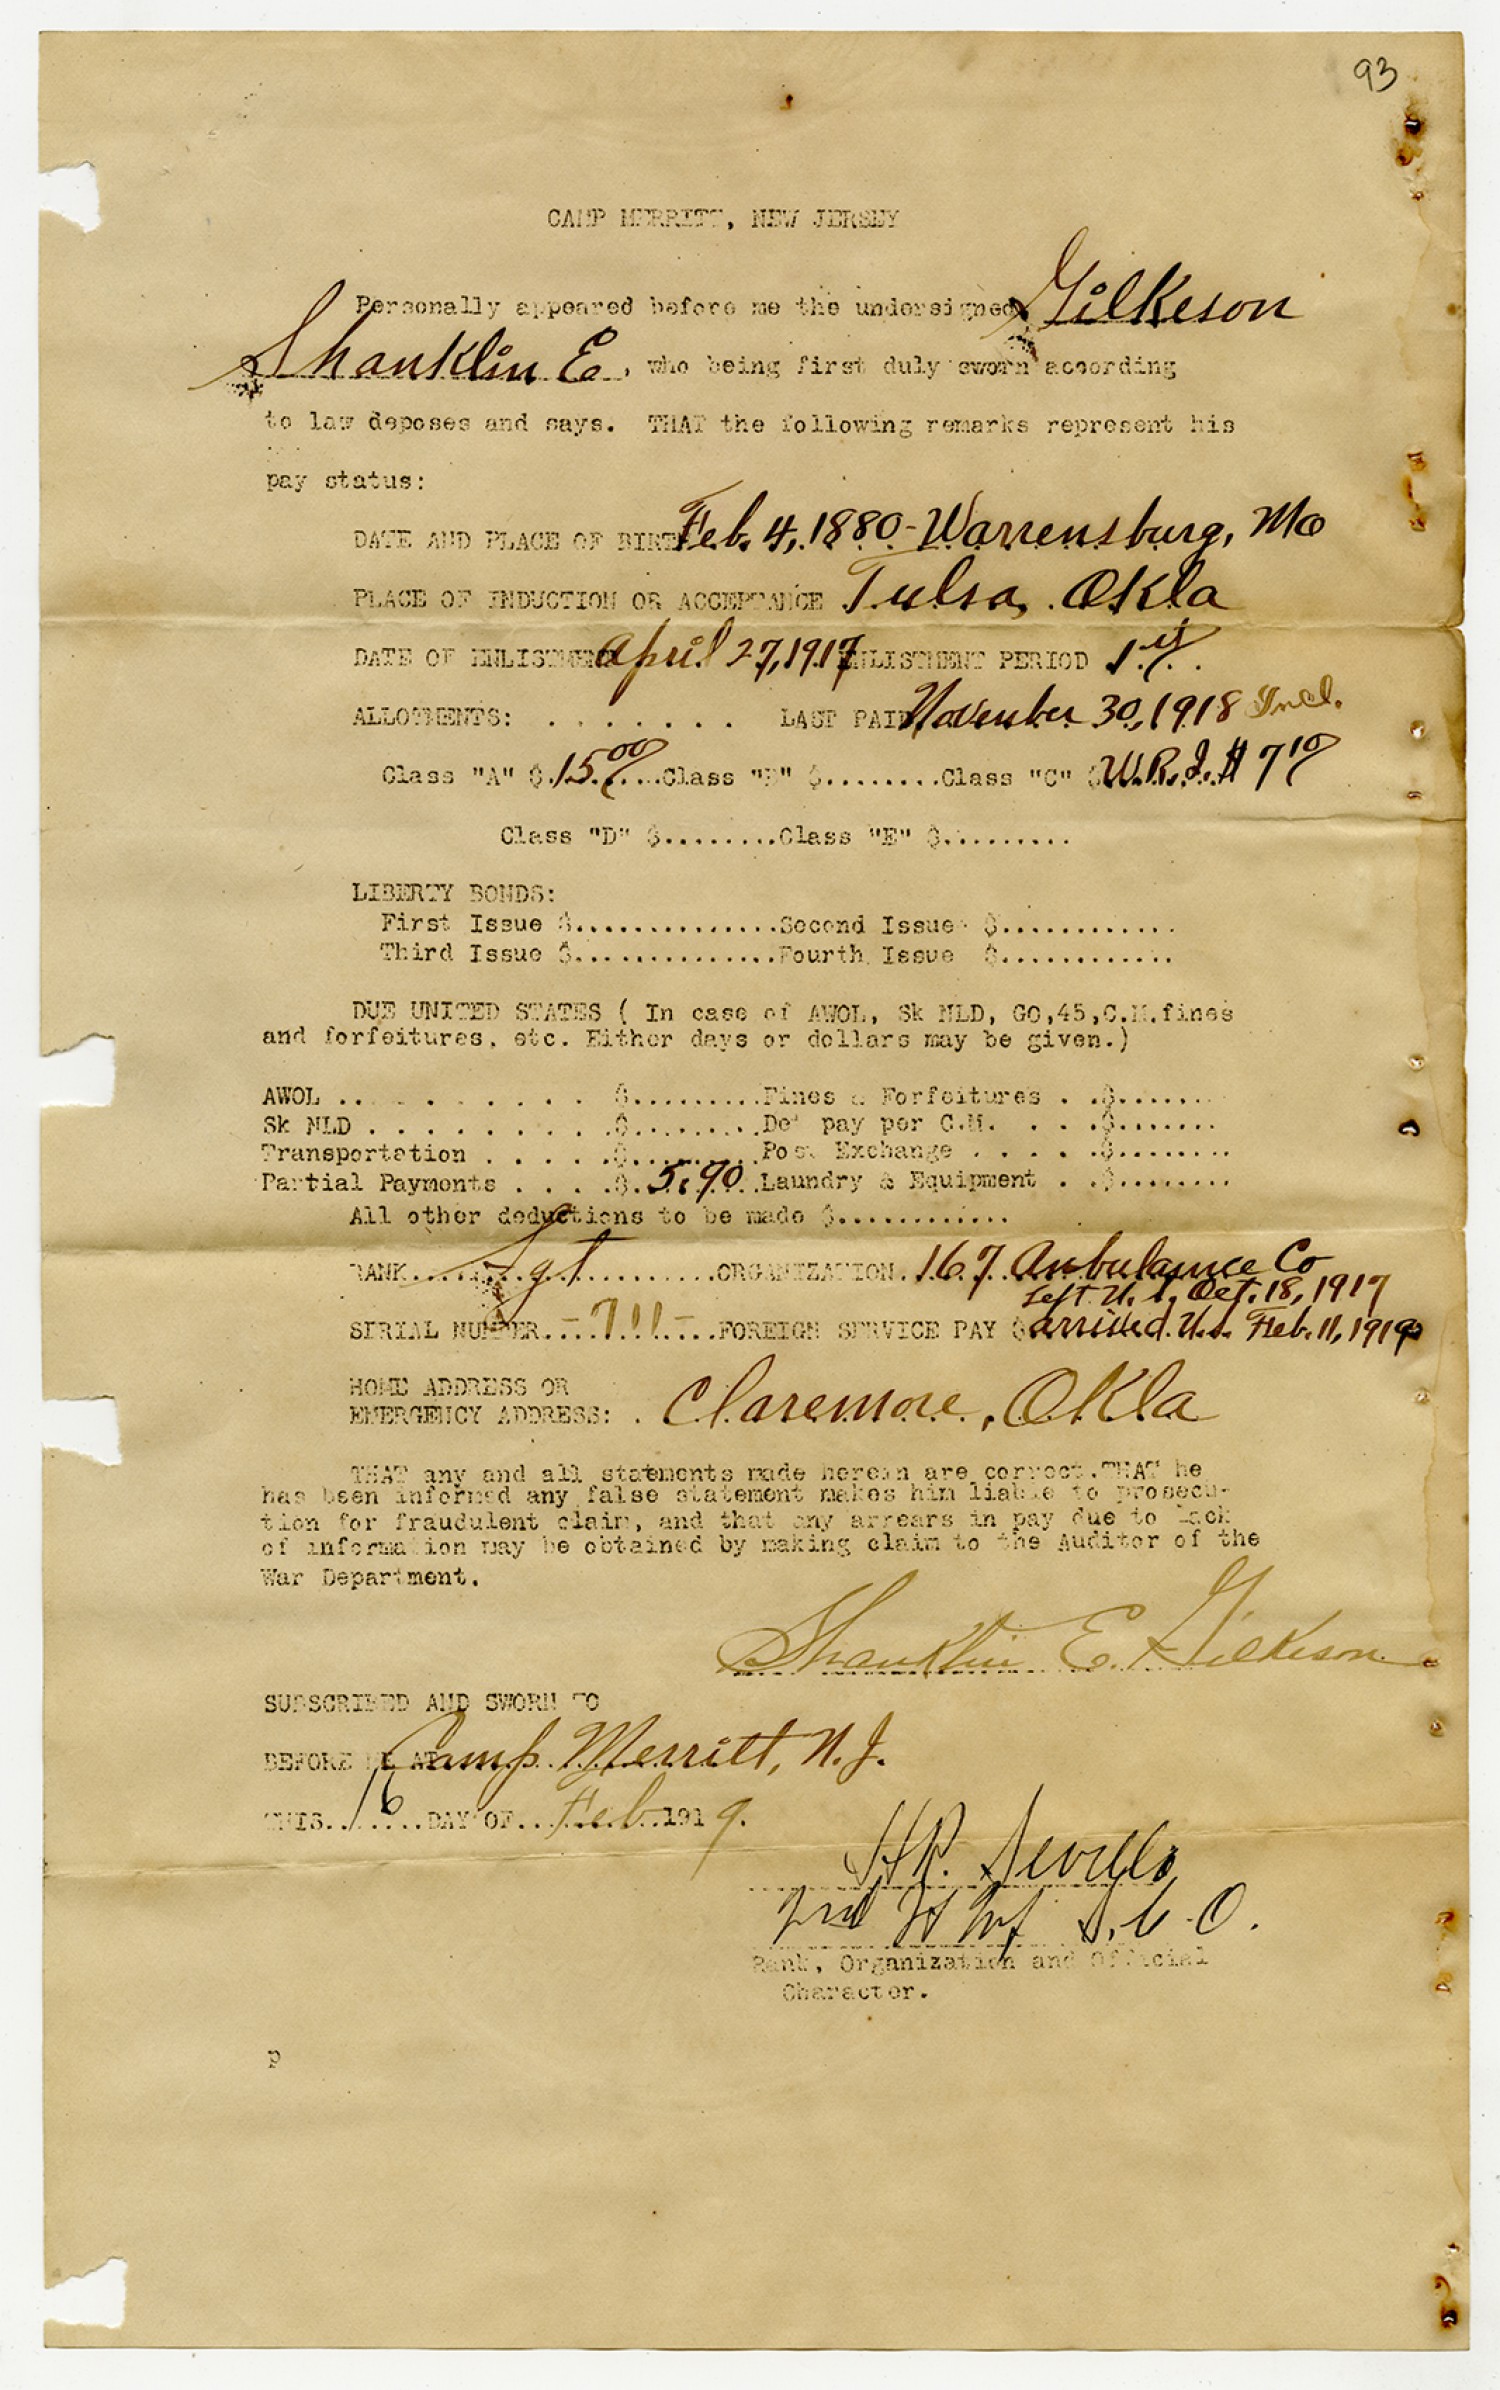 93
CAMP MERRITT, NEW JERSEY
Personally appeared before me the undersigned Gilkeson
Shanklin E., who being first duly sworn according
to law deposes and says. THAT the following remarks represent his
pay status:
DATE AND PLACE OF BIRTH Feb. 4, 1880 - Warrensburg, Mo
PLACE OF INDUCTION OR ACCEPTANCE Tulsa, Okla
DATE OF ENLISTMENT April 27, 1917 ENLISTMENT PERIOD 1 y
ALLOTMENTS: . . . . . . . LAST PAID November 30, 1918 Incl.
Class "A" $.15.00....Class "B" $........Class "C" $W.R.I. $ 7 10
Class "D" $........Class "E" $.........
LIBERTY BONDS:
First Issue $..............Second Issue $............
Third Issue $..............Fourth Issue $............
DUE UNITED STATES ( In case of AWOL, Sk NLD, GO,45,C.M.fines
and forfeitures, etc. Either days or dollars may be given.)
AWOL .. . . . . . . . . $.........Fines & Forfeitures . .$........
Sk NLD . . . . . . . . .$.........Det pay per C.M. . . .$........
Transportation . . . . .$.........Post Exchange . . . . .$........
Partial Payments . . . .$.5.90..Laundry & Equipment . .$........
All other deductions to be made $............
RANK......Sgt..........ORGANIZATION.167 Ambulance Co
Left U.S. Oct. 18, 1917
SIRIAL NUMBER..-711-...FOREIGN SERVICE PAY $ arrived U.S. Feb. 11, 1919
HOME ADDRESS OR
EMERGENCY ADDRESS: . Claremore, Okla
THAT any and all statements made herein are correct.THAT he
has been informed any false statement makes him liable to prosecu-
tion for fraudulent claim, and that any arrears in pay due to lack
of information may be obtained by making claim to the Auditor of the
War Department.
Shanklin E. Gilkeson
SUBSCRIBED AND SWORN TO
BEFORE ME AT Camp Merritt, N.J.
THIS..16..DAY OF...Feb..1919.
H.R.
2nd Lt Inf
Rank, Organization and Official
Character.
p